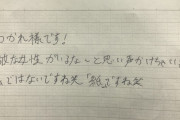 つかれ様です!
敵な女性がいるな〜と思い声かけちゃい
とはないですね笑 「経」ですね笑